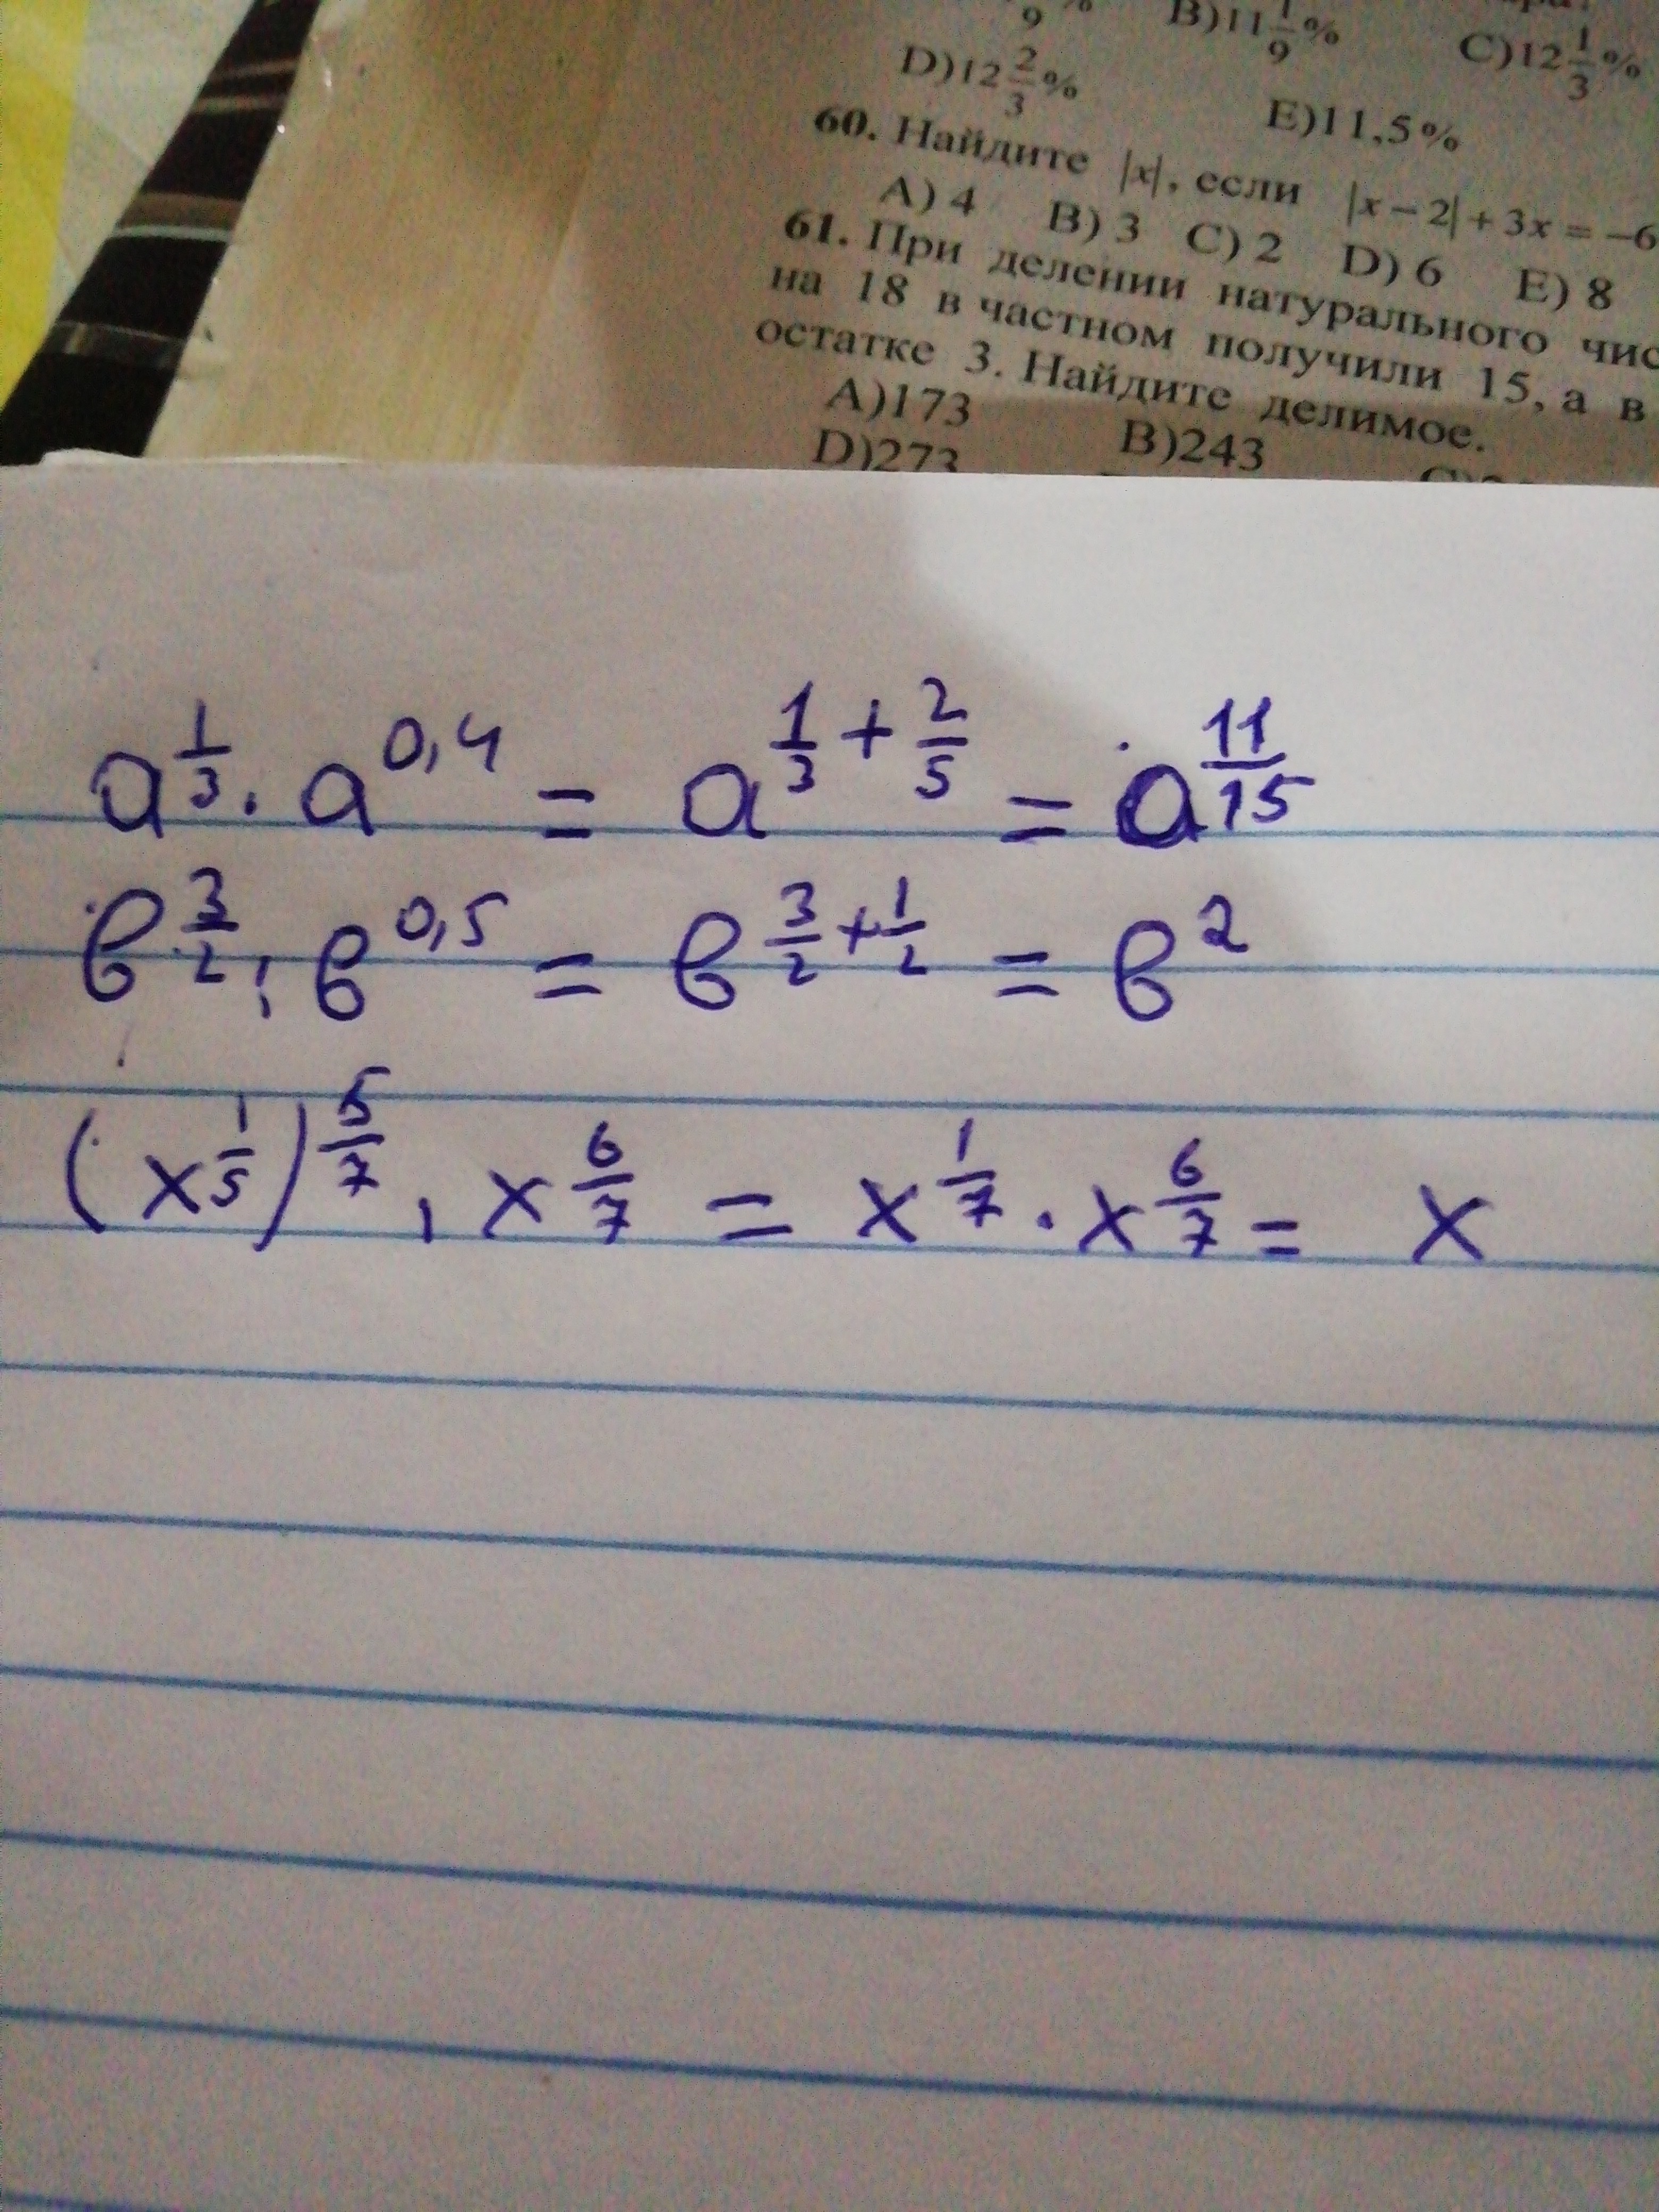 9 %
B)11 1/9 %
C)12 1/3 %
D)12 2/3 %
E)11,5%
60. Найдите |x|, если |x − 2| + 3x = −6
A) 4 B) 3 C) 2 D) 6 E) 8
61. При делении натурального чис
на 18 в частном получили 15, а в
остатке 3. Найдите делимое.
A)173 B)243
D)273
a^(1/3) · a^(0,4) = a^(1/3 + 2/5) = a^(11/15)
в^(3/2) · в^(0,5) = в^(3/2 + 1/2) = в^2
(x^(1/5))^(5/7) · x^(6/7) = x^(1/7) · x^(6/7) = x